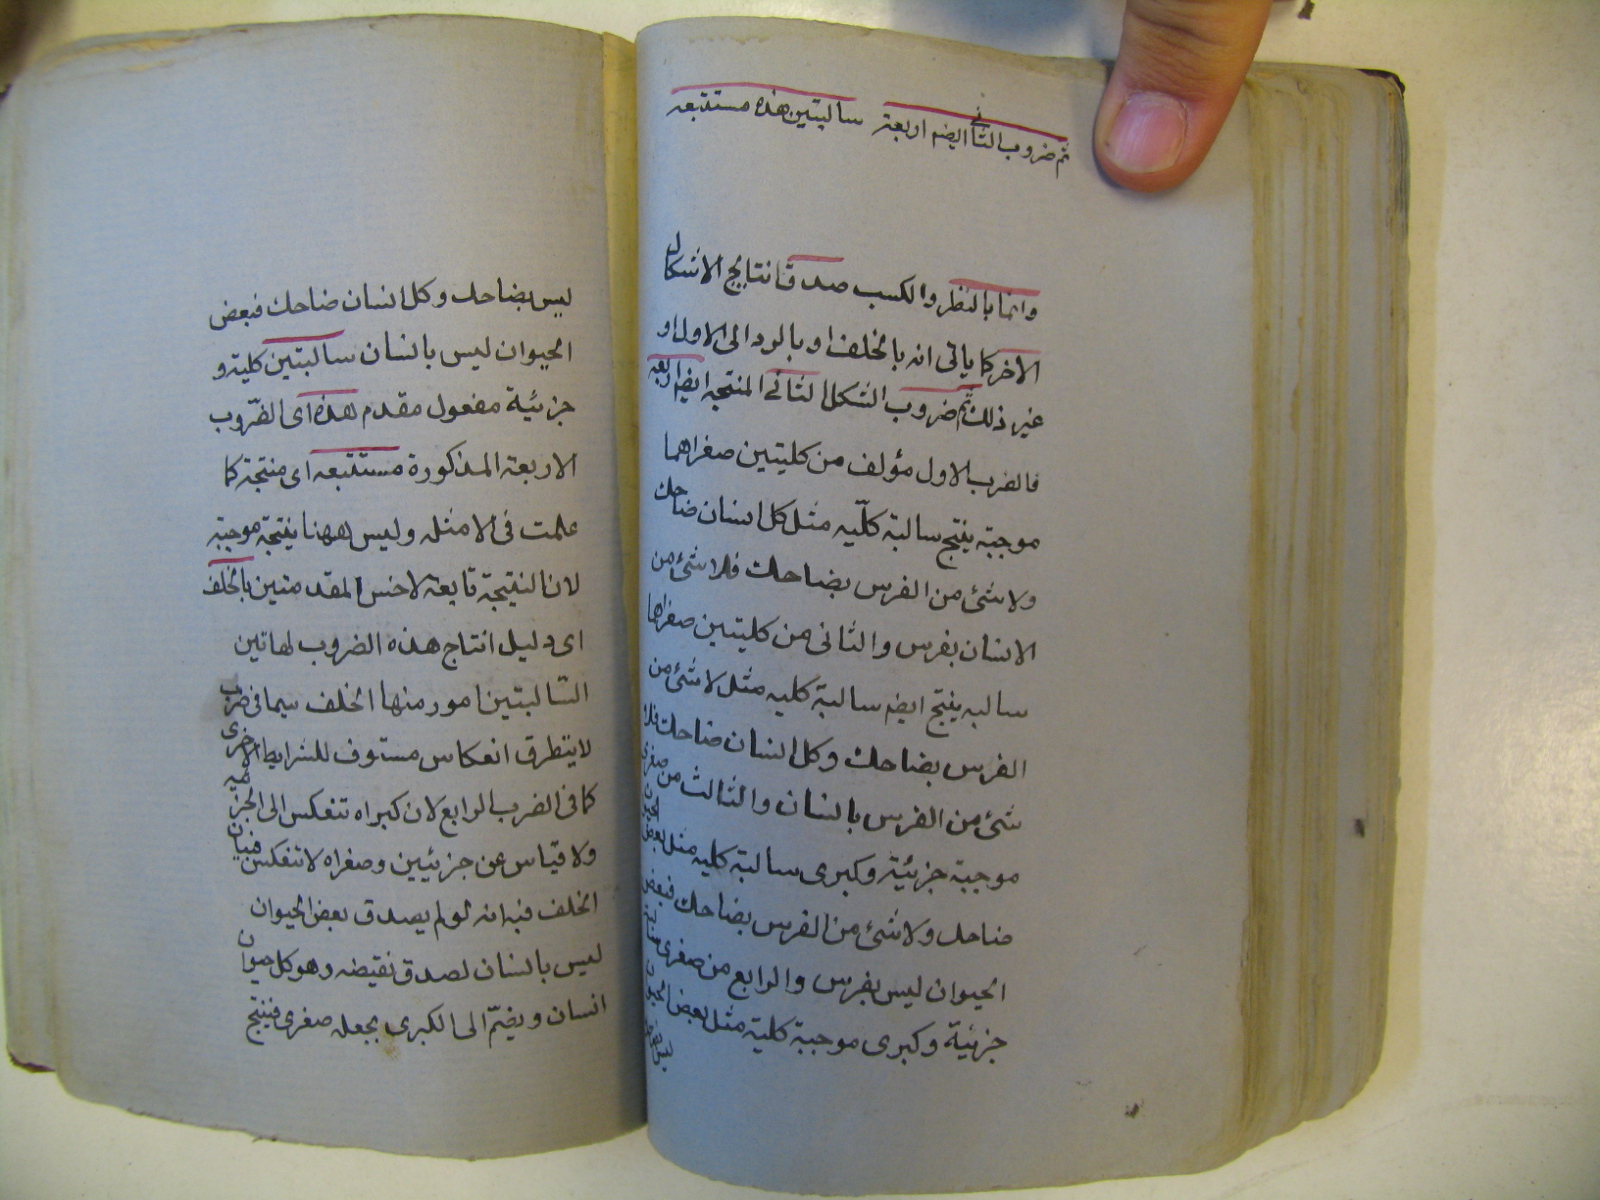 ثم ضروب الثاني ايضم اربعة سالبتين هذه مستتبعه
وانما بالنظر والكسب صدق انتايج الاشكال
الاخر كما ياتى انه بالخلف او بالرد الى الاول او
غير ذلك ثم ضروب الشكل الثاني المنتجه ايضم اربعه
فالضرب الاول مؤلف من كليتين صغراهما
موجبة ينتج سالبة كلّيه مثل كل انسان ضاحك
ولا شئ من الفرس بضاحك فلا شئ من
الانسان بفرس والثانى من كليتين صغراهما
سالبه ينتج ايضم سالبة كليه مثل لا شئ من
الفرس بضاحك وكل انسان ضاحك فلا
شئ من الفرس بانسان والثالث من صغرى
موجبة جزئية وكبرى سالبة كليه مثل بعض الحيوان
ضاحك ولا شئ من الفرس بضاحك فبعض
الحيوان ليس بفرس والرابع من صغرى سالبة
جزئية وكبرى موجبة كلية مثل بعض الحيوان
ليس بضاحك وكل انسان ضاحك فبعض
الحيوان ليس بانسان سالبتين كلية و
جزئية مفعول مقدم لهذه اى الضّروب
الاربعة المذكورة مستتبعه اى منتجة كما
علمت فى الامثله وليس ههنا ينتجة موجبة
لان النتيجة تابعة لاخس المقدمتين بالخلف
اى دليل انتاج هذه الضروب لهاتين
السّالبتين امور منها الخلف سيما فى ضرب
لا يتطرق انعكاس مستوف للشرايط الاخرى
كما فى الضرب الرابع لان كبراه تنعكس الى الجزئيه
ولا قياس عن جزئيين وصغراه لا تنعكس فبيان
الخلف فيه انه لو لم يصدق بعض الحيوان
ليس بانسان لصدق نقيضه وهو كل حيوان
انسان ويضمّ الى الكبرى بجعله صغرى فينتج